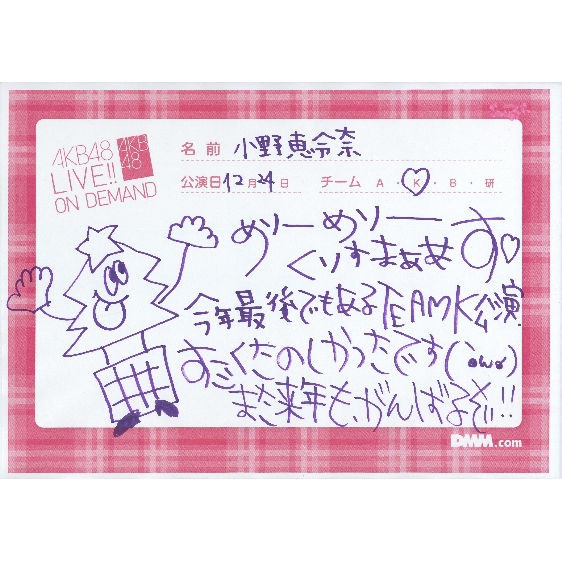 AKB48
LIVE!!
ON DEMAND
AKB
48
名前 小野恵令奈
公演日 12月24日 チーム A・K・B・研
めりーめりー
くりすまぁぁす♡
今年最後でもあるTEAMK公演
すごくたのしかったです(´ω`)
また来年も、がんばるぞ!!
DMM.com